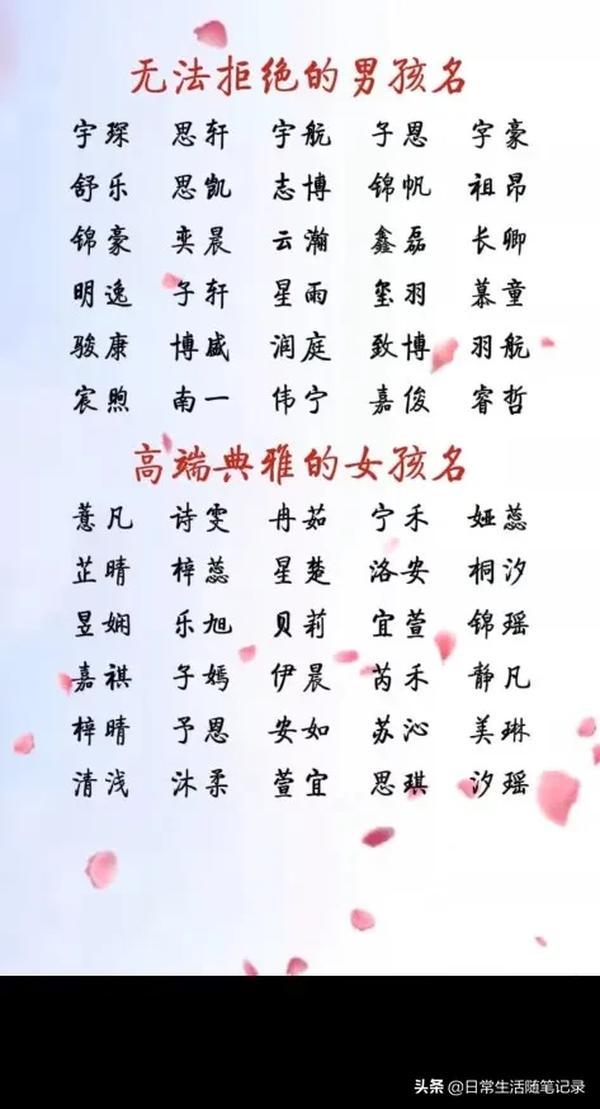 无法拒绝的男孩名
宇琛 思轩 宇航 子恩 宇豪
舒乐 思凯 志博 锦帆 祖昂
锦豪 奕晨 云瀚 鑫磊 长卿
明逸 子轩 星雨 玺羽 慕童
骏康 博盛 润庭 致博 羽航
宸煦 南一 伟宁 嘉俊 睿哲
高端典雅的女孩名
薏凡 诗雯 冉茹 宁禾 娅蕊
芷晴 梓蕊 星楚 洛安 桐汐
昱娴 乐旭 贝莉 宜萱 锦瑶
嘉祺 子嫣 伊晨 芮禾 静凡
梓晴 予恩 安如 苏沁 美琳
清浅 沐柔 萱宜 思琪 汐瑶
头条 @日常生活随笔记录